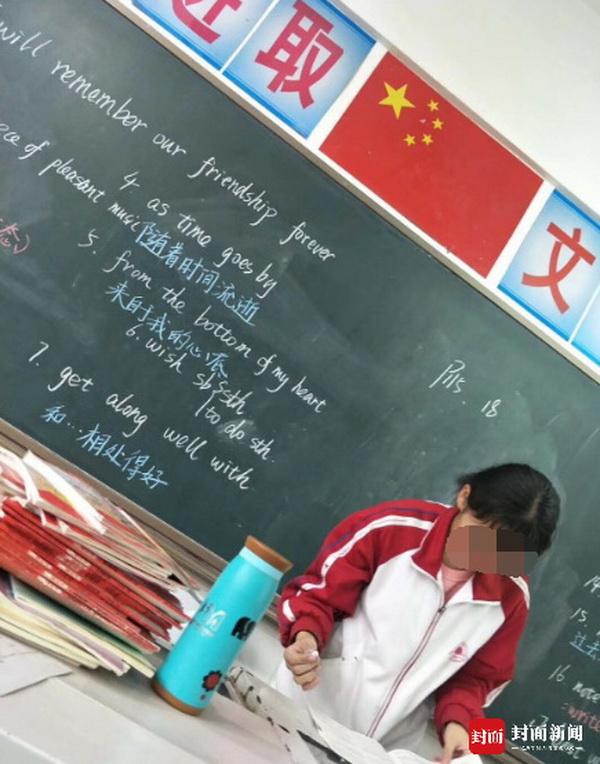 进取
文
will remember our friendship forever
piece of pleasant music
4. as time goes by
随着时间流逝
5. from the bottom of my heart
来自于我的心底
6. wish sb sth
to do sth.
7. get along well with
和...相处得好
P115. 18
14.
15.
过去
16. note
封面
封面新闻